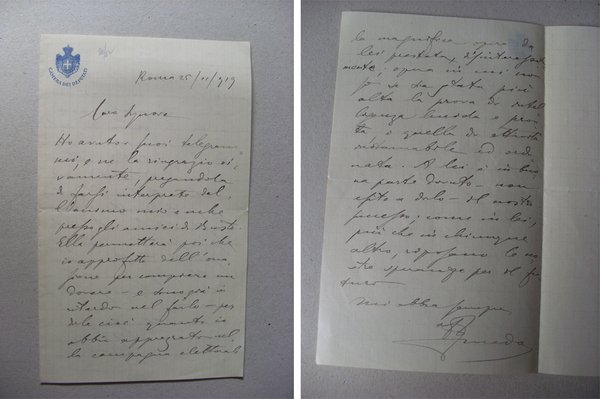 CAMERA DEI DEPUTATI
Roma 25/11/919
Cara Signora
Ho avuto i suoi telegram-
mi, e ne la ringrazio vi-
vamente, pregandola
di farsi interprete del-
l'animo mio anche
presso gli amici di Busto.
Ella permetterà poi che
io approfitti dell'occa-
sione per compiere un
dovere - e sono già in
ritardo nel farlo - per
dirle cioè quanto io
abbia apprezzato nel-
la campagna elettorale
la magnifica opera da
lei prestata, disinteressata-
mente, opera in cui non
so se sia stata più
alta la prova di intel-
ligenza lucida e pron-
ta, o quella di attività
instancabile ed ordi-
nata. A lei si in buo-
na parte dovuto - non
esito a dirlo - il nostro
successo: come in lei,
più che in chiunque
altro, riposano le no-
stre speranze per il fu-
turo
Mi abbia sempre